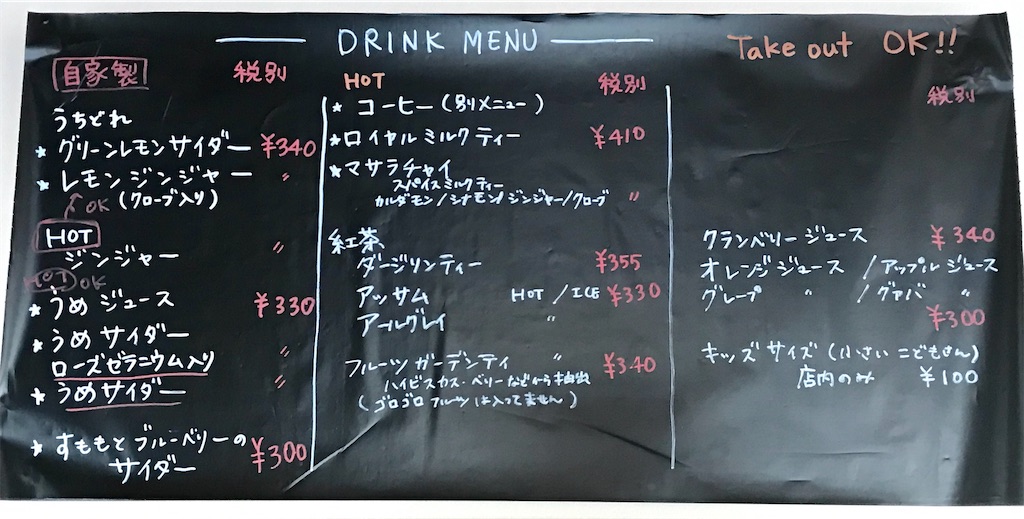 DRINK MENU
Take out OK!!
自家製 税別
うちどれ
★ グリーンレモンサイダー ¥340
★ レモンジンジャー 〃
OK (クローブ入り)
HOT
ジンジャー 〃
HOT OK
★ うめジュース ¥330
★ うめサイダー
ローズゼラニウム入り 〃
★ うめサイダー 〃
★ すももとブルーベリーの
サイダー ¥300
HOT 税別
★ コーヒー(別メニュー)
★ ロイヤルミルクティー ¥410
★ マサラチャイ
スパイスミルクティー
カルダモン/シナモン/ジンジャー/クローブ 〃
紅茶
ダージリンティー ¥355
アッサム HOT / ICE ¥330
アールグレイ 〃
フルーツガーデンティ 〃 ¥340
ハイビスカス・ベリーなどから抽出
(ゴロゴロフルーツは入ってません)
税別
クランベリージュース ¥340
オレンジジュース / アップルジュース
グレープ 〃 / グァバ 〃
¥300
キッズサイズ (小さいこどもさん)
店内のみ ¥100